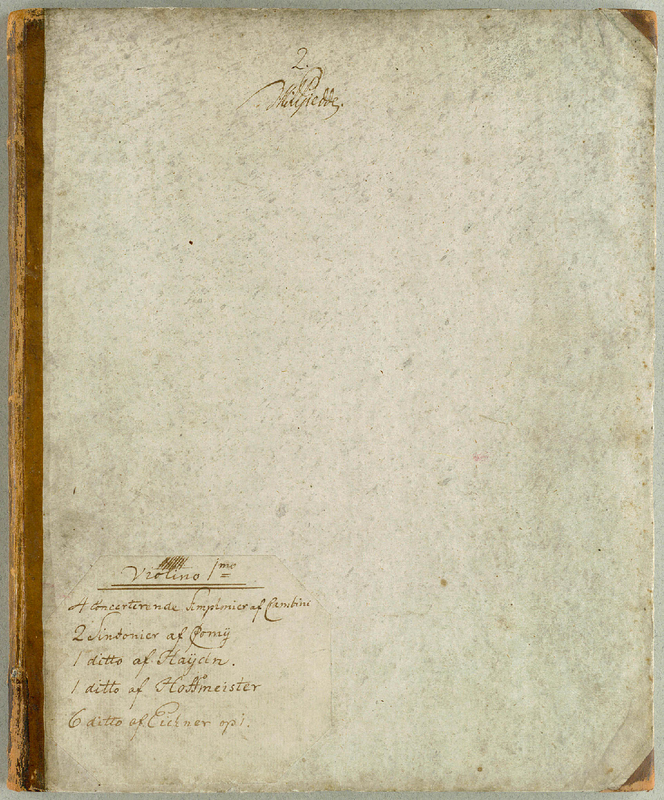 2.
Violino 1mo
4 Concerterende Simphonier af Cambini
2 Sindonier af Romÿ
1 ditto af Haÿdn.
1 ditto af Hoffmeister
6 ditto af Eichner op 1.